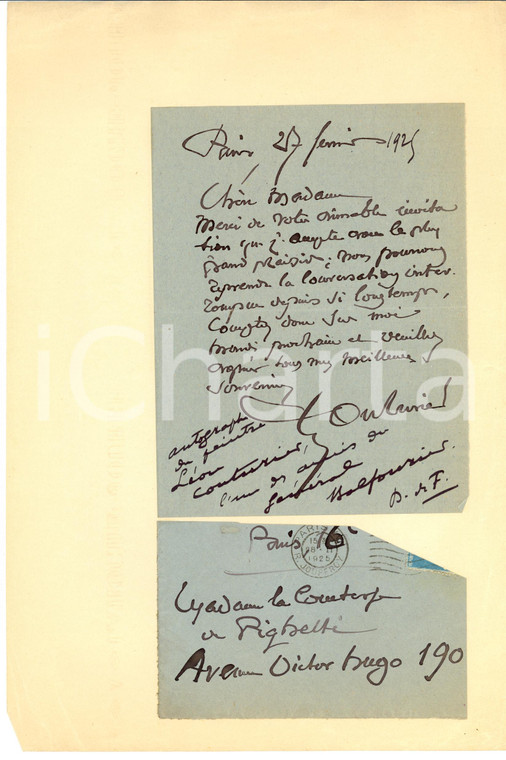 Paris 27 février 1925
Chère Madame
Merci de votre aimable invita
tion que j'accepte avec le plus
grand plaisir. nous pourrons
reprendre la conversation inter
rompue depuis si longtemps,
Comptez donc sur moi
mardi prochain et veuillez
agréer tous mes meilleurs
souvenirs
L Couturier
autographe
du peintre
Léon
Couturier,
l'un des amis du
général Balfourier.
P. de F.
iCharta
Paris 16
PARIS
1925
R. JOUFFROY
Madame la Comtesse
de Pighetti
Avenue Victor Hugo 190